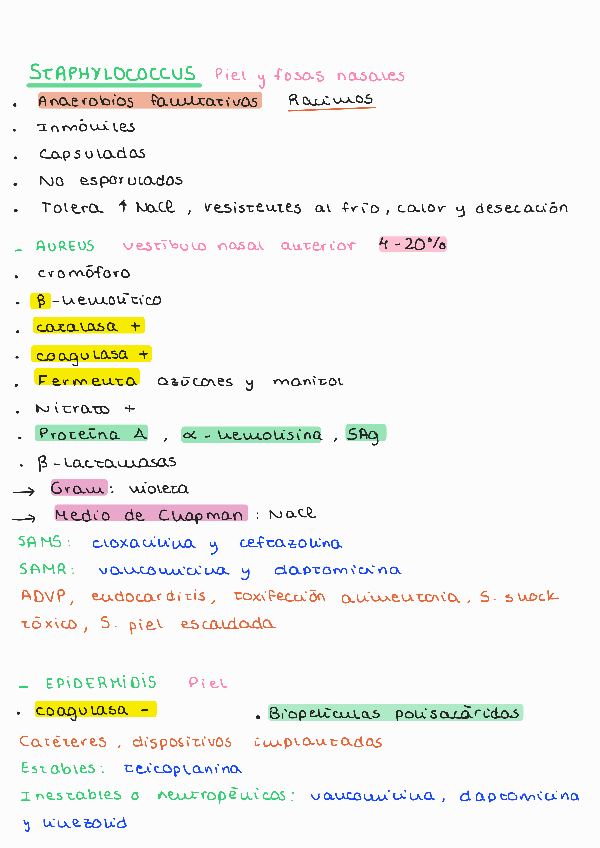 STAPHYLOCOCCUS Piel y fosas nasales
. Anaerobios facultativos Racimos
. Inmóviles
. Capsuladas
. No esporulados
. Tolera ↑ NaCl, resistentes al frío, calor y desecación
- AUREUS vestíbulo nasal anterior 4-20%
. cromóforo
. β-hemolítico
. catalasa +
. coagulasa +
. Fermenta azúcares y manitol
. Nitrato +
. Proteína A, α-hemolisina, SAg
. β-lactamasas
→ Gram: violeta
→ Medio de Chapman: NaCl
SAMS: cloxacilina y ceftazolina
SAMR: vancomicina y daptomicina
ADVP, endocarditis, toxifección alimentaria, S. shock
tóxico, S. piel escaldada
- EPIDERMIDIS Piel
. coagulasa - . Biopelículas polisacáridos
Catéteres, dispositivos implantados
Estables: teicoplanina
Inestables o neutropénicos: vancomicina, daptomicina
y linezolid